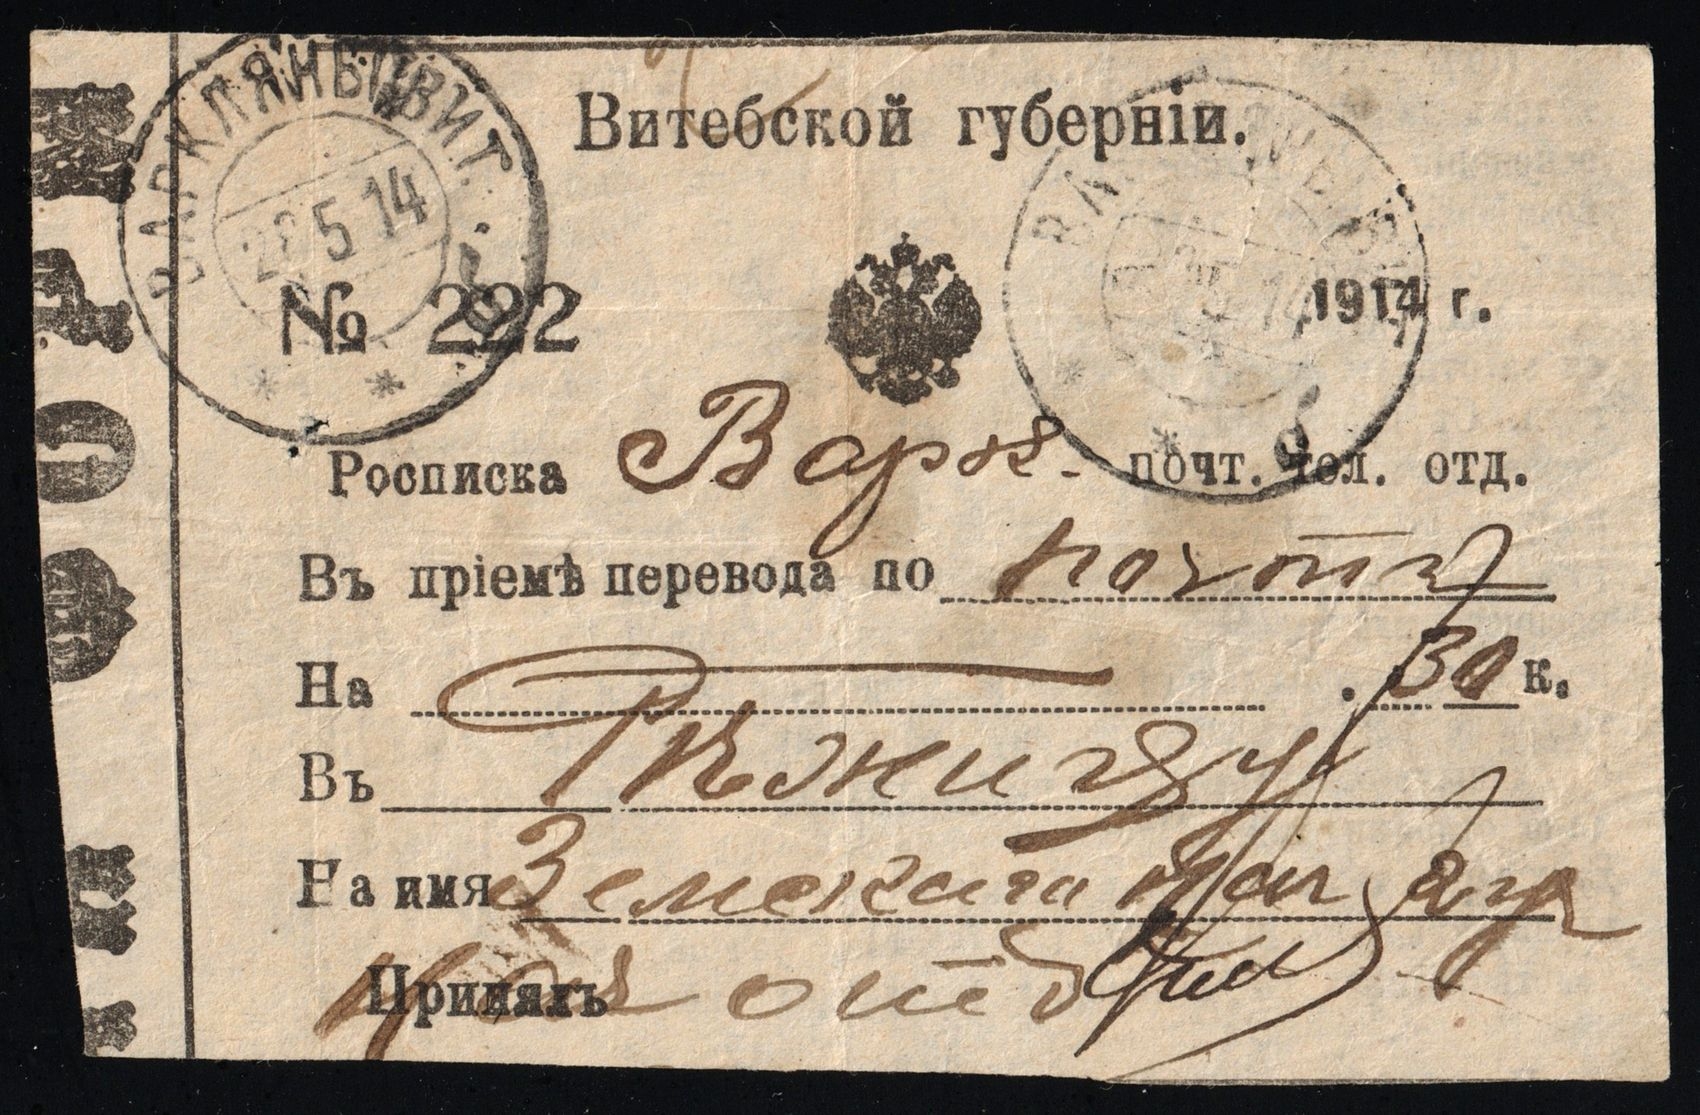 ВАРКЛЯНЫ ВИТ.
28 5 14
Витебской губерніи.
№ 222
1914 г.
Росписка Варк. почт. тел. отд.
Въ пріемѣ перевода по почтѣ
На 30 к.
Въ Рѣжицу
На имя Земскаго
Принялъ